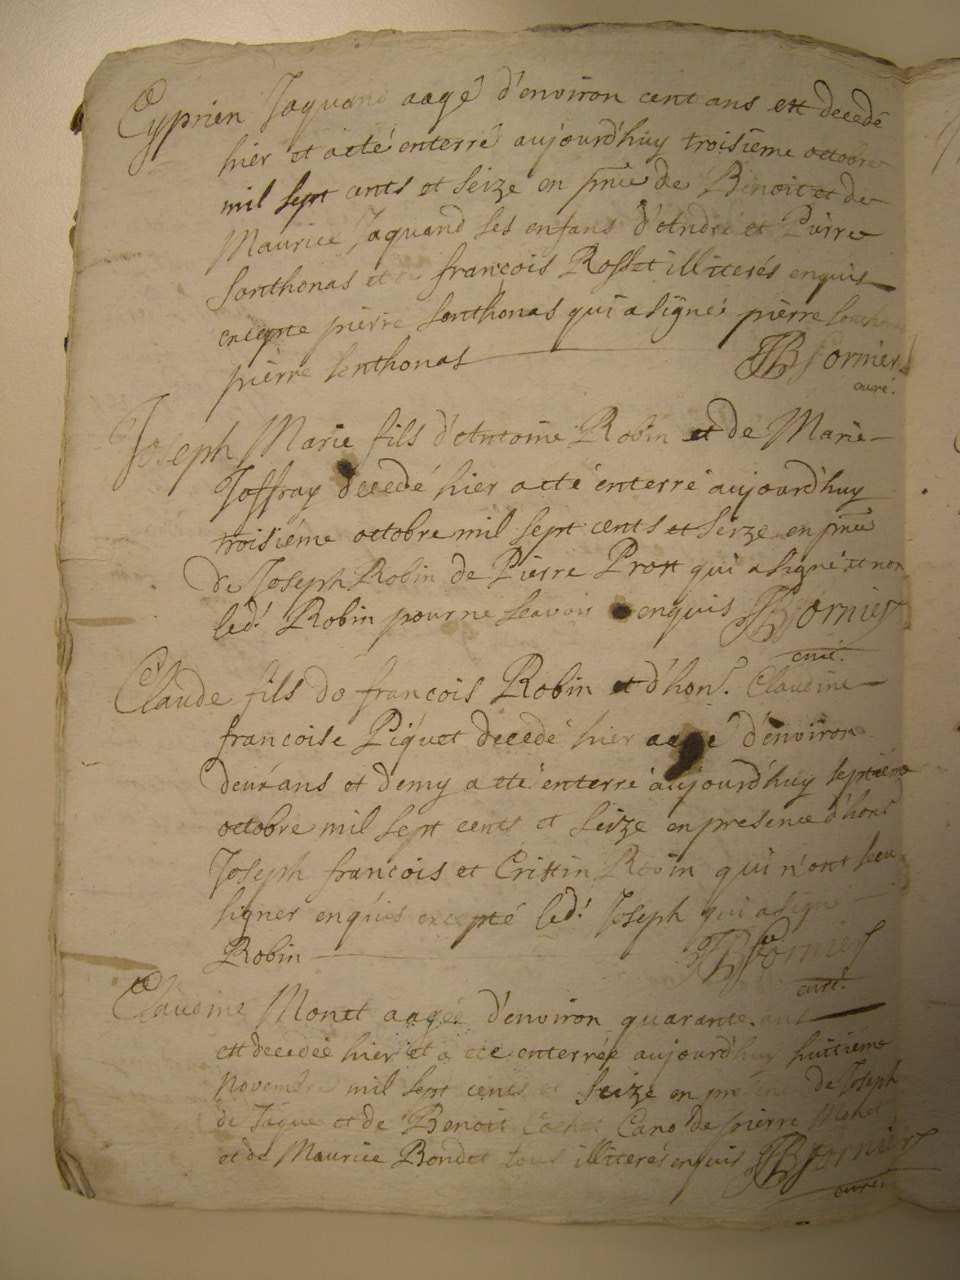 Cyprien Jaquand aagé d'environ cent ans est decedé
hier et a eté enterré aujourd'huy troisiéme octobre
mil sept cents et seize en pnce de Benoit et de
Maurice Jaquand ses enfans d'André et Pierre
Sonthonas et françois Rosset illiterés enquis
excepte pierre Sonthonas qui a signé pierre
pierre Sonthonas JB fornier
curé.
Joseph Marie fils d'Antoine Robin et de Marie
Joffray decedé hier a eté enterré aujourd'huy
troisiéme octobre mil sept cents et seize en pnce
de Joseph Robin de Pierre Prost qui a signé et non
led. Robin pour ne scavoir enquis JB fornier
curé.
Claude fils de françois Robin et d'hon. Claudine
francoise Piquet decedé hier aagé d'environ
deux ans et demy a eté enterré aujourd'huy septiéme
octobre mil sept cents et seize en presence d'hon.
Joseph francois et Cristin Robin qui n'ont sceu
signer enquis excepté led. Joseph qui a signé
Robin JB fornier
curé.
Claudine Monet aagée d'environ quarante ans
est decedée hier et a eté enterrée aujourd'huy huitiéme
Novembre mil sept cents et seize en presence de Joseph
de Jaque et de Benoit de pierre
et de Maurice Bondet tous illiterés enquis JB fornier
curé.